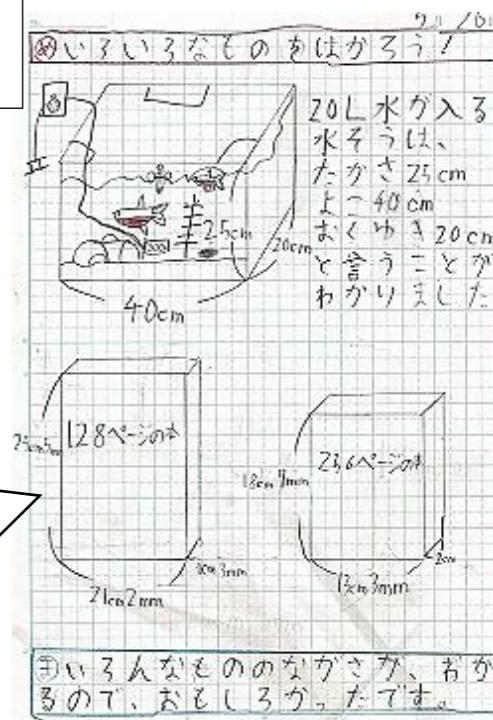 めいろいろなものをはかろう!
20L水が入る
水そうは、
たかさ25cm
よこ40cm
おくゆき20cm
と言うことが
わかりました
25cm
20cm
40cm
128ページの本
21cm2mm
1cm3mm
236ページの本
18cm9mm
13cm3mm
2cm
まいろんなもののながさが、おか
るので、おもしろかったです。